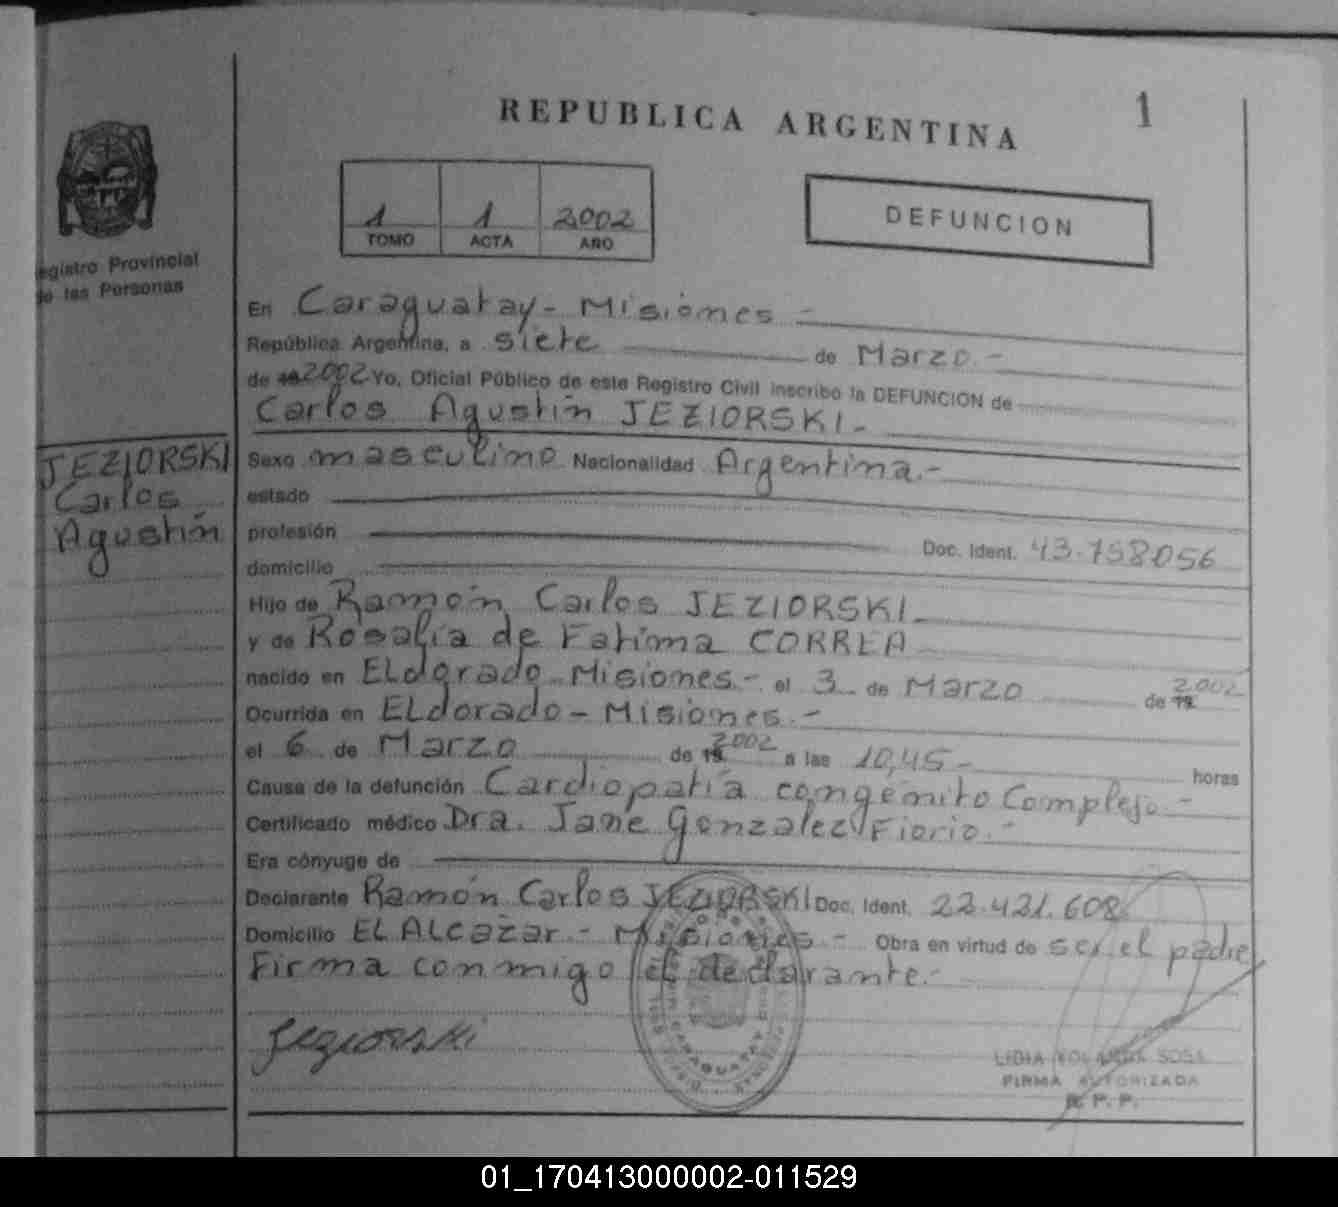 REPUBLICA ARGENTINA
1
1 1 2002
TOMO ACTA AÑO
DEFUNCION
egistro Provincial
de las Personas
En Caraguatay - Misiones -
República Argentina, a siete de Marzo. -
de 19 2002 Yo, Oficial Público de este Registro Civil inscribo la DEFUNCION de
Carlos Agustín JEZIORSKI -
JEZIORSKI
Carlos
Agustín
Sexo masculino Nacionalidad Argentina. -
estado
profesión
Doc. Ident. 43.758056
domicilio
Hijo de Ramón Carlos JEZIORSKI -
y de Rosalía de Fatima CORREA
nacido en ELdorado - Misiones. - el 3 de Marzo de 19 2002
Ocurrida en ELdorado - Misiones. -
el 6 de Marzo de 19 2002 a las 10,45 - horas
Causa de la defunción Cardiopatía congénito Complejo -
Certificado médico Dra. Jane Gonzalez Fiorio. -
Era cónyuge de
Declarante Ramón Carlos JEZIORSKI Doc. Ident. 22.421.608
Domicilio EL ALcazar. - Misiones - Obra en virtud de ser el padre
Firma conmigo el declarante. -
Jeziorski
CARAGUATAY
LIDIA YOLANDA SOSA
FIRMA AUTORIZADA
R. P. P.
01_170413000002-011529